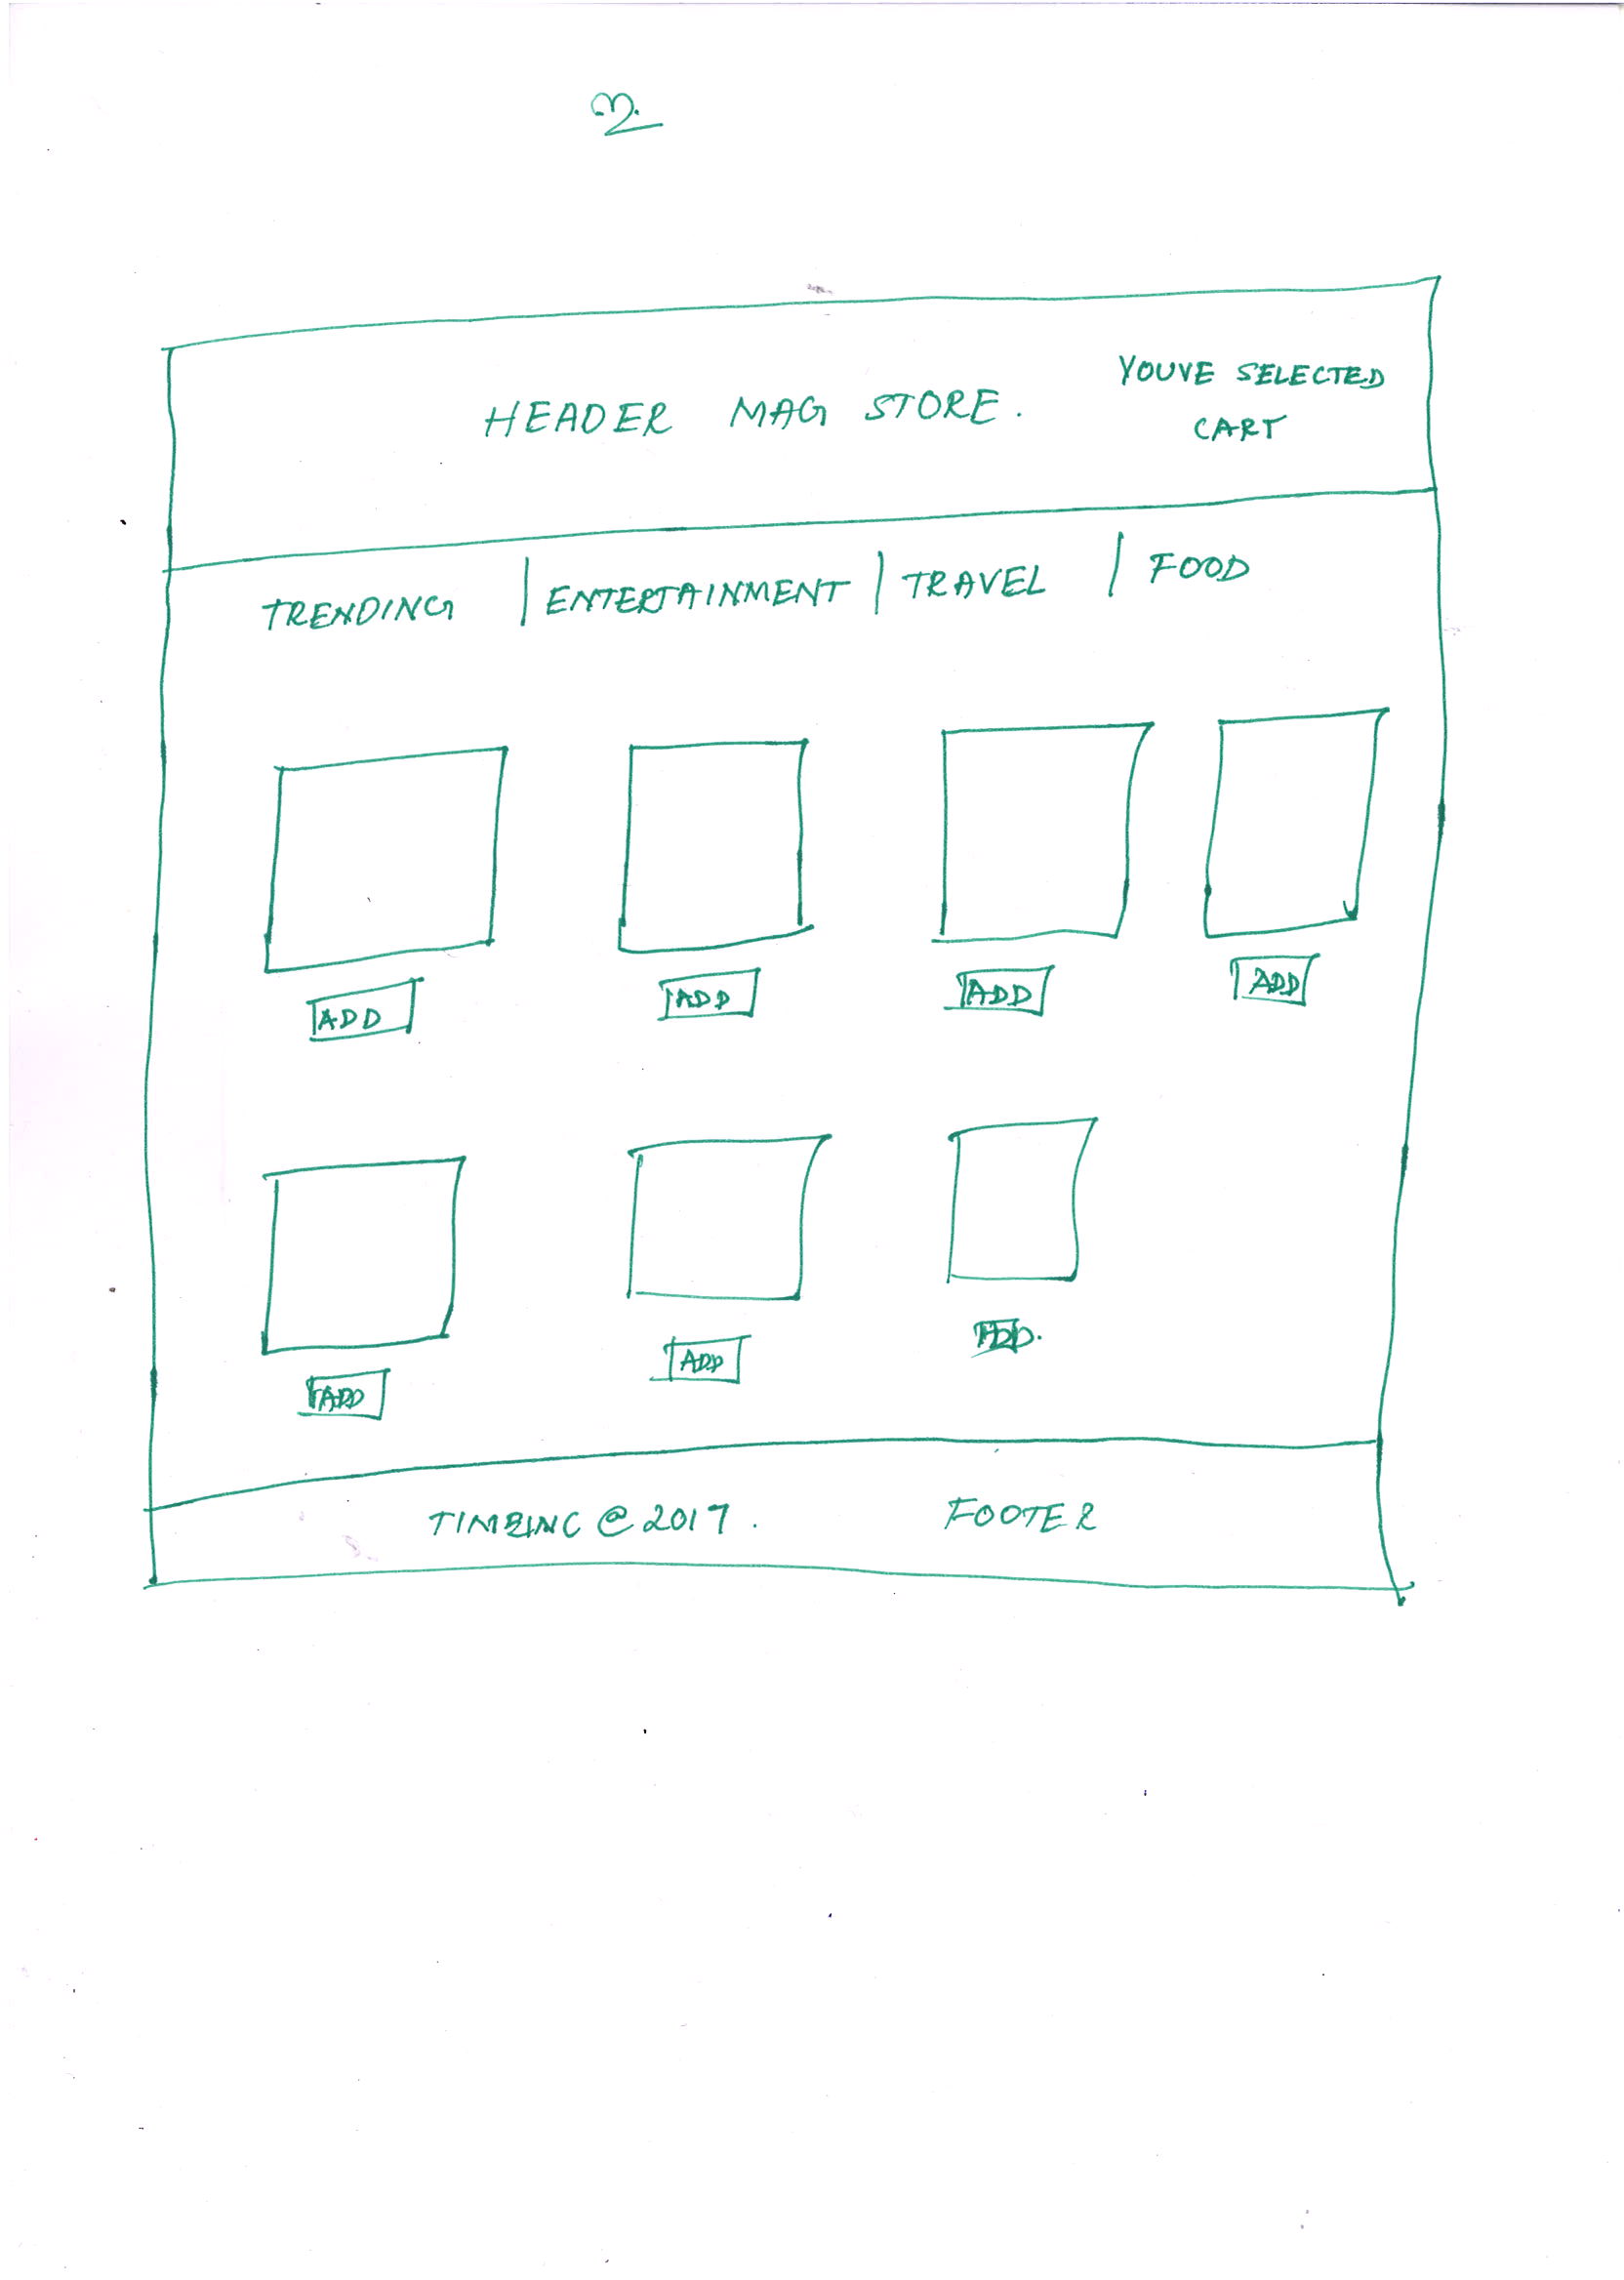 HEADER MAG STORE.
YOUVE SELECTED
CART
TRENDING | ENTERTAINMENT | TRAVEL | FOOD
ADD ADD ADD ADD
ADD ADD ADD.
@ 2017. FOOTER